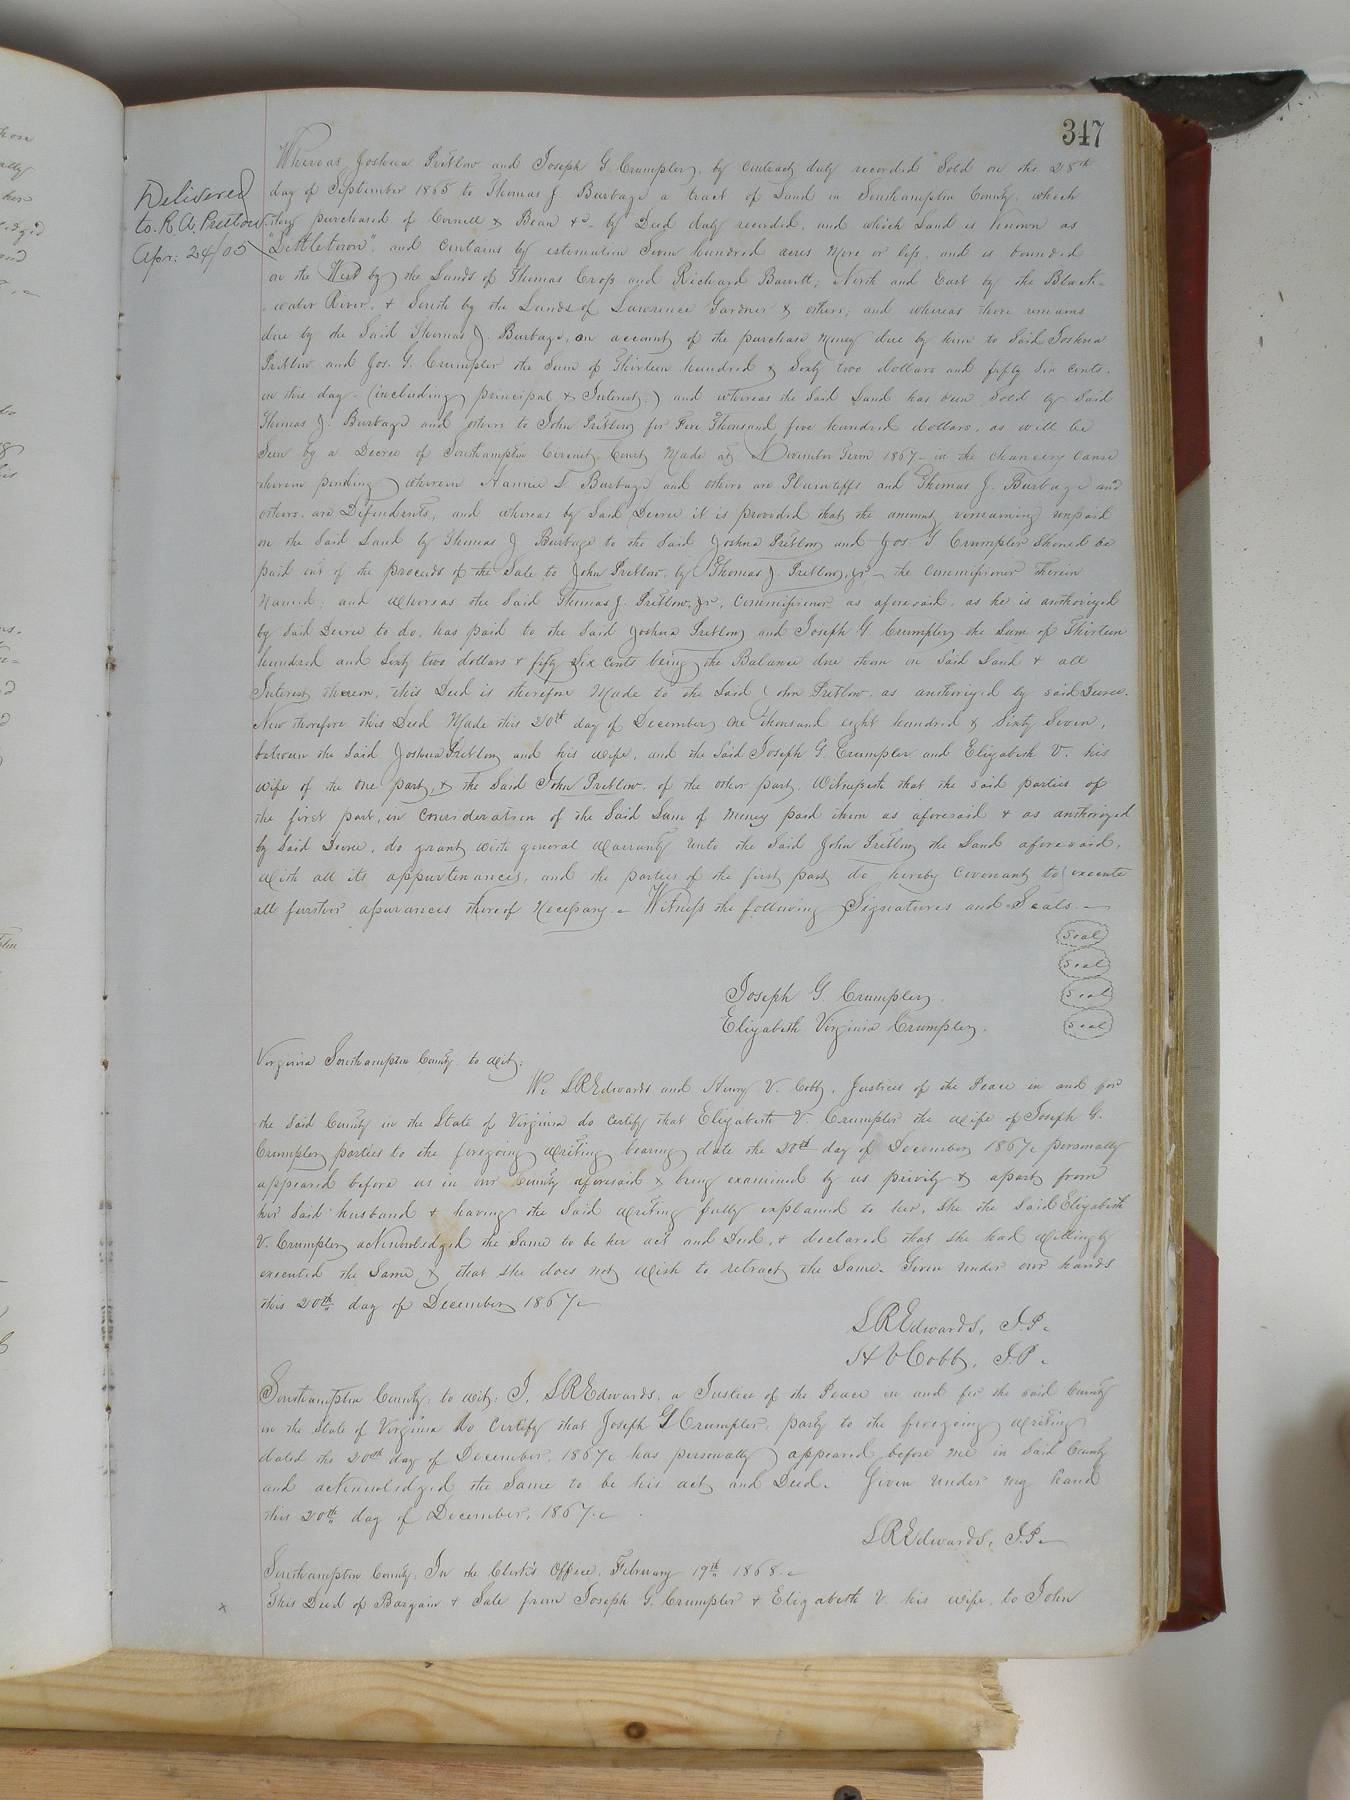 347
Delivered
to R. A. Pretlow
Apr: 24/05
Whereas, Joshua Pretlow and Joseph G. Crumpler, by contract duly recorded Sold on the 28th
day of September 1865 to Thomas J. Burbage a tract of Land in Southampton County, which
they purchased of & Bean &c. by Deed duly recorded, and which Land is Known as
and contains by estimation Seven hundred acres More or less, and is bounded
on the West by the Lands of Thomas Cross and Richard Barrett, North and East by the Black-
water River, & South by the Lands of Lawrence Gardner & others; and whereas there remains
due by the Said Thomas J. Burbage, on account of the purchase Money due by him to Said Joshua
Pretlow and Jos. G. Crumpler the Sum of Thirteen hundred & Sixty two dollars and fifty Six cents.
on this day (including principal & Interest,) and whereas the Said Land has been Sold by Said
Thomas J. Burbage and others to John Pretlow for Five Thousand five hundred dollars, as will be
Seen by a Decree of Southampton Circuit Court Made at November Term 1867 in the chancery Cause
therein pending wherein Burbage and others are Plaintiffs and Thomas J. Burbage and
others are Defendants, and whereas by Said Decree it is provided that the amount remaining unpaid
on the Said Land by Thomas J Burbage to the Said Joshua Pretlow and Jos G Crumpler Should be
paid out of the proceeds of the Sale to John Pretlow by Thomas J. Pretlow, Jr – the Commissioner therein
Named; and Whereas the Said Thomas J. Pretlow, Jr, Commissioner as aforesaid, as he is authorized
by Said Decree to do, has paid to the Said Joshua Pretlow and Joseph G. Crumpler the Sum of Thirteen
hundred and Sixty two dollars & fifty Six cents being the Balance due them on Said Land & all
Interest thereon, this Deed is therefore Made to the Said John Pretlow, as authorized by said Decree.
Now therefore this Deed Made this 20th day of December, One thousand eight hundred & Sixty Seven,
between the Said Joshua Pretlow and his wife, and the Said Joseph G. Crumpler and Elizabeth V. his
wife of the one part, & the Said John Pretlow, of the other part, Witnesseth that the said parties of
the first part, in consideration of the Said Sum of Money paid them as aforesaid & as authorized
by Said Decree, do grant with general Warranty unto the Said John Pretlow the Land aforesaid,
With all its appurtenances, and the parties of the first part do hereby Covenant to execute
all further assurances thereof Necessary. – Witness the following Signatures and Seals. –
Seal
Seal
Joseph G. Crumpler. Seal
Elizabeth Virginia Crumpler. Seal
Virginia Southampton County to Wit:
We L R Edwards and Henry V. Cobb, Justices of the Peace in and for
the Said County in the State of Virginia do Certify that Elizabeth V. Crumpler the wife of Joseph G.
Crumpler parties to the foregoing Writing bearing date the 20th day of December 1867, personally
appeared before us in our County aforesaid & being examined by us privily & apart from
her Said husband & having the Said Writing fully explained to her, She the Said Elizabeth
V. Crumpler acknowledged the Same to be her act and Deed, & declared that she had Willingly
executed the Same & that she does not Wish to retract the Same. Given under our hands
this 20th day of December 1867.
L R Edwards, J.P.
H V Cobb, J.P.
Southampton County; to Wit: I, L R Edwards, a Justice of the Peace in and for the said County
in the State of Virginia do Certify that Joseph G Crumpler, party to the foregoing Writing
dated the 20th day of December, 1867, has personally appeared before me in Said County
and acknowledged the Same to be his act and Deed. Given under my hand
this 20th day of December, 1867.
L R Edwards, J.P.
Southampton County; In the Clerk's Office, February 19th 1868.
x This Deed of Bargain & Sale from Joseph G. Crumpler & Elizabeth V. his wife, to John